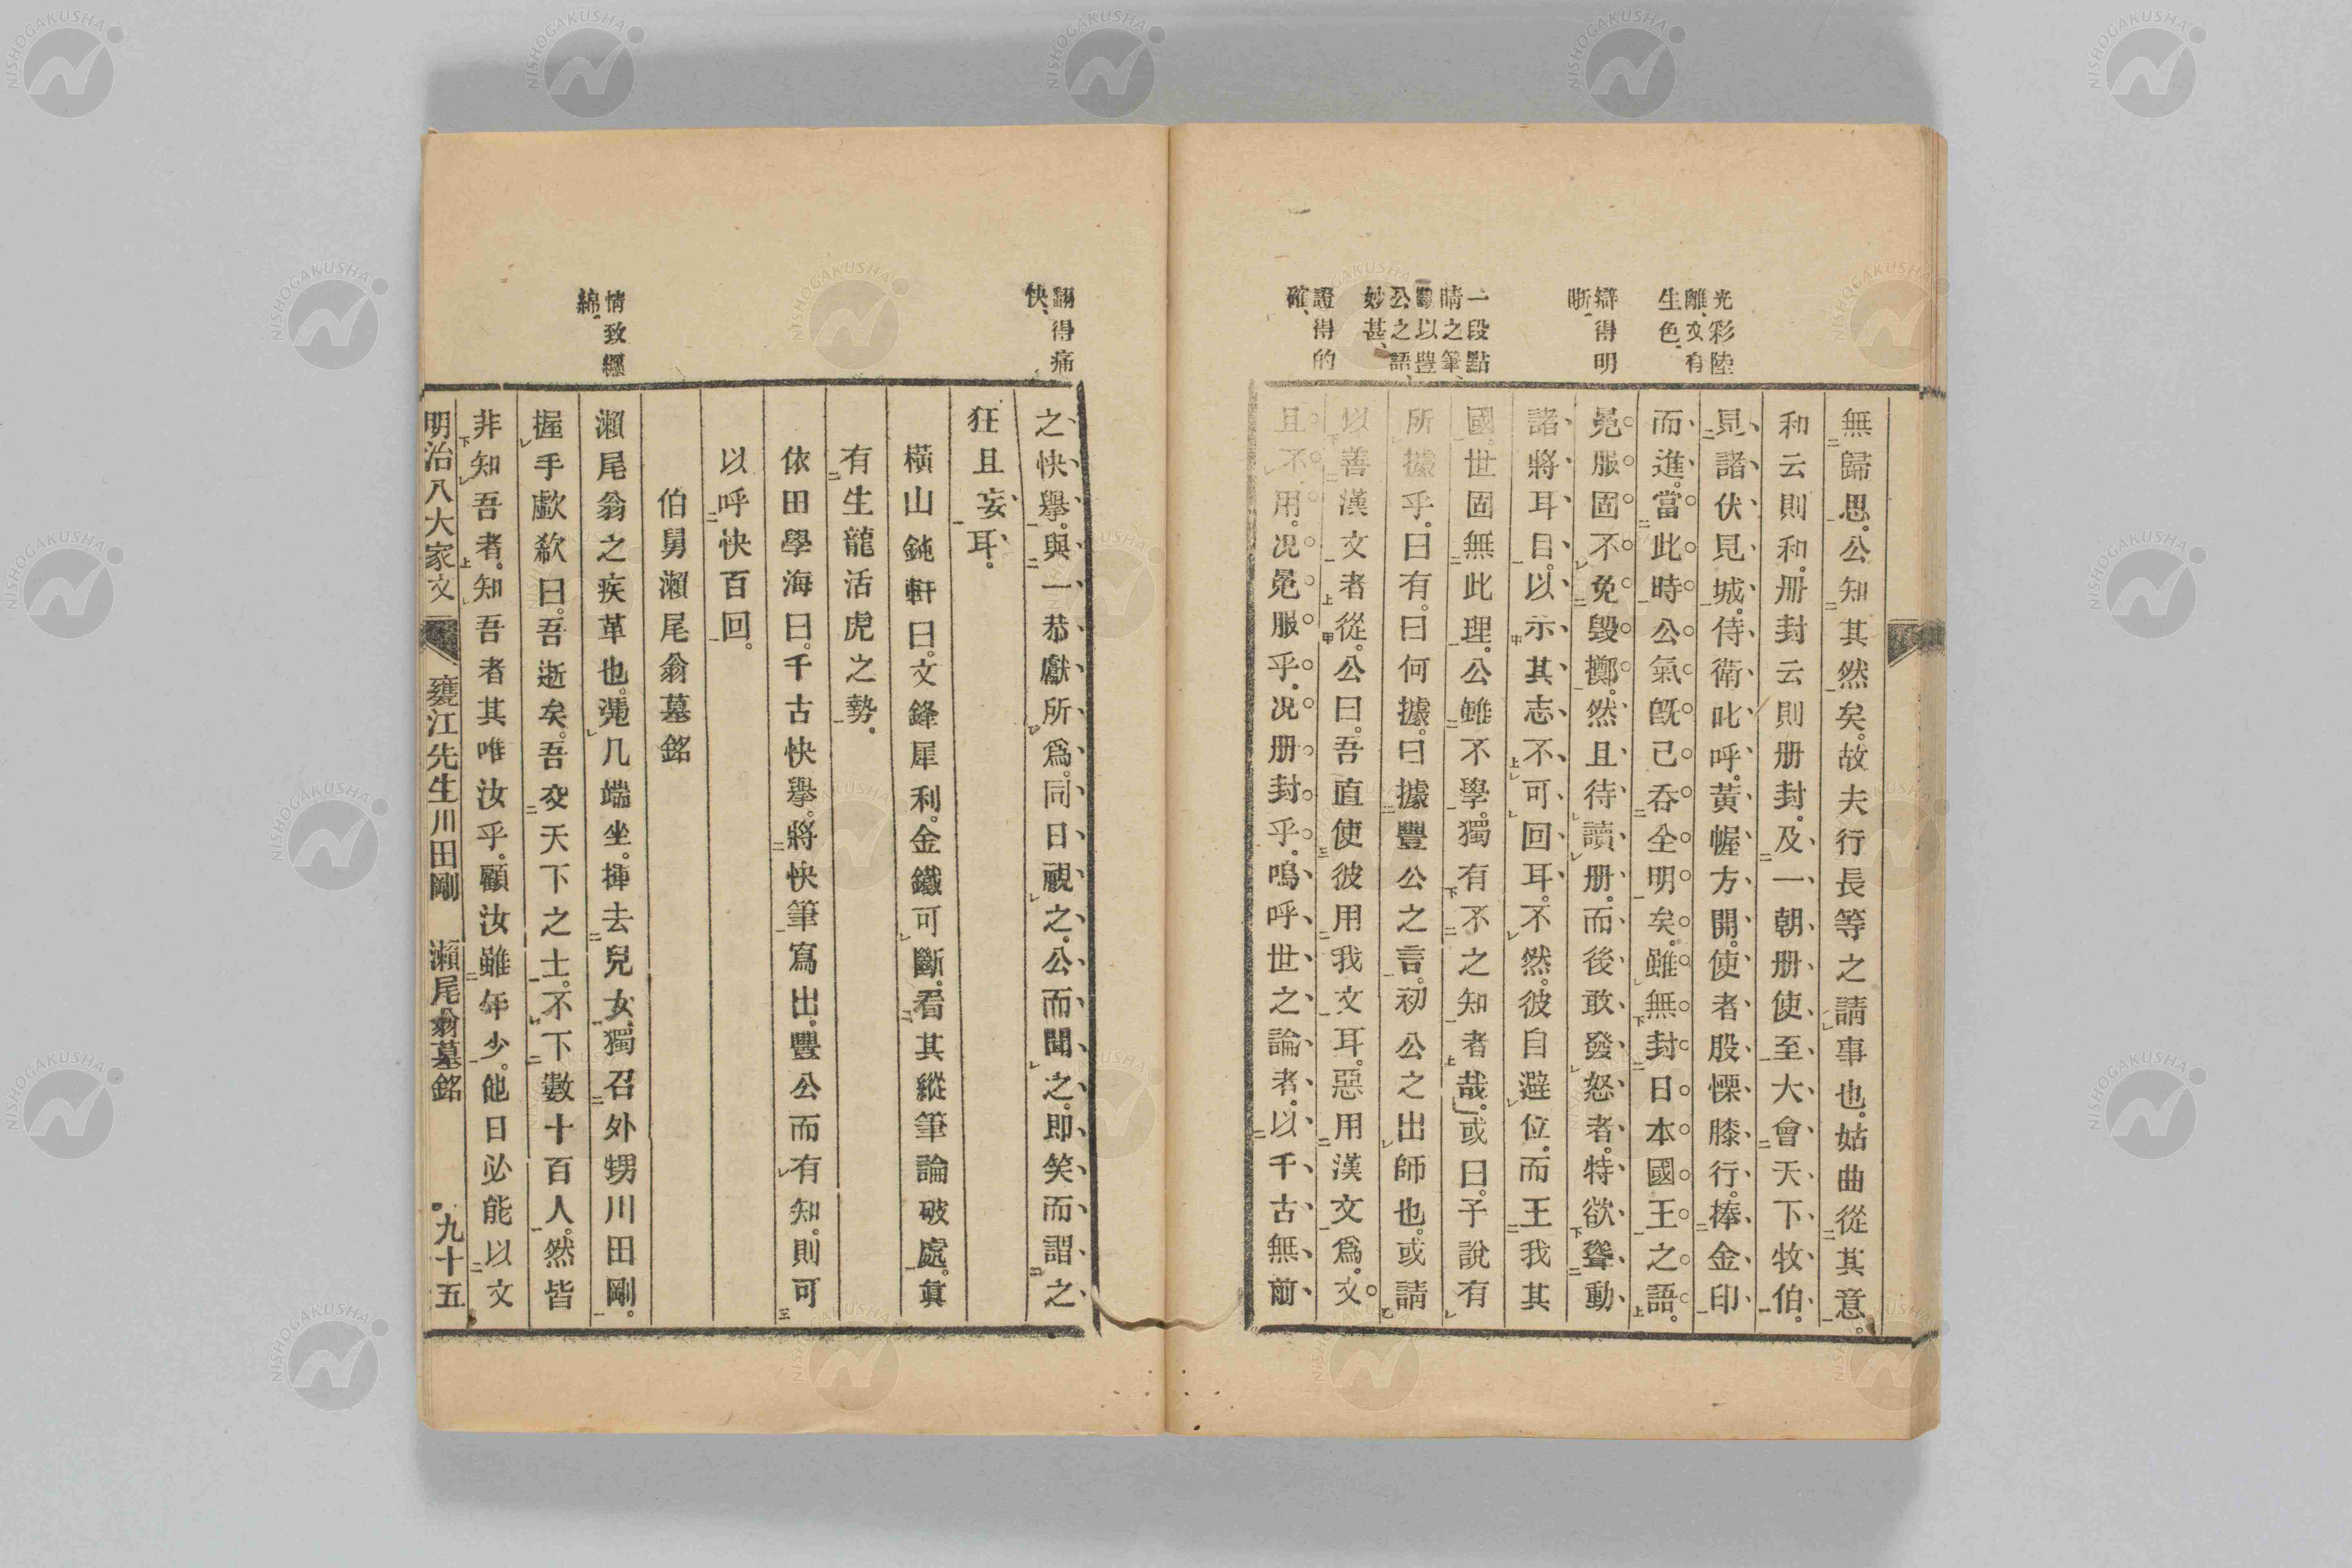 光彩陸
離、文有
生色、
辯得明
晰、
一段點
睛之筆、
以豐
公之語、
妙甚、
證得的
確、
無歸思。公知其然矣。故夫行長等之請事也。姑曲從其意。
和云則和。册封云則册封。及一朝册使至大會天下牧伯。
見諸伏見城。侍衛叱呼。黃幄方開。使者股慄膝行。捧金印
而進。當此時公氣既已呑全明矣。雖無封日本國王之語。
冕服固不免毀擲。然且待讀册。而後敢發怒者。特欲聳動
諸將耳目。以示其志不可回耳。不然。彼自避位。而王我其
國。世固無此理。公雖不學。獨有不之知者哉。或曰。子說有
所據乎。曰有。曰何據。曰據豐公之言。初公之出師也。或請
以善漢文者從。公曰。吾直使彼用我文耳。惡用漢文爲。文
且不用。况冕服乎。况册封乎。嗚呼世之論者。以千古無前
翻得痛
快、
情致纒
綿、
之快擧。與一恭獻所爲。同日視之。公而聞之。即笑而謂之
狂且妄耳。
橫山鈍軒曰。文鋒犀利。金鐵可斷。看其縱筆論破處。眞
有生龍活虎之勢。
依田學海曰。千古快擧。將快筆寫出。豐公而有知。則可
以呼快百回。
伯舅瀨尾翁墓銘
瀨尾翁之疾革也。凭几端坐。揮去兒女。獨召外甥川田剛。
握手歔欷曰。吾逝矣。吾交天下之士。不下數十百人。然皆
非知吾者。知吾者其唯汝乎。顧汝雖年少。他日必能以文
明治八大家文 甕江先生川田剛 瀨尾翁墓銘 九十五
NISHOGAKUSHA